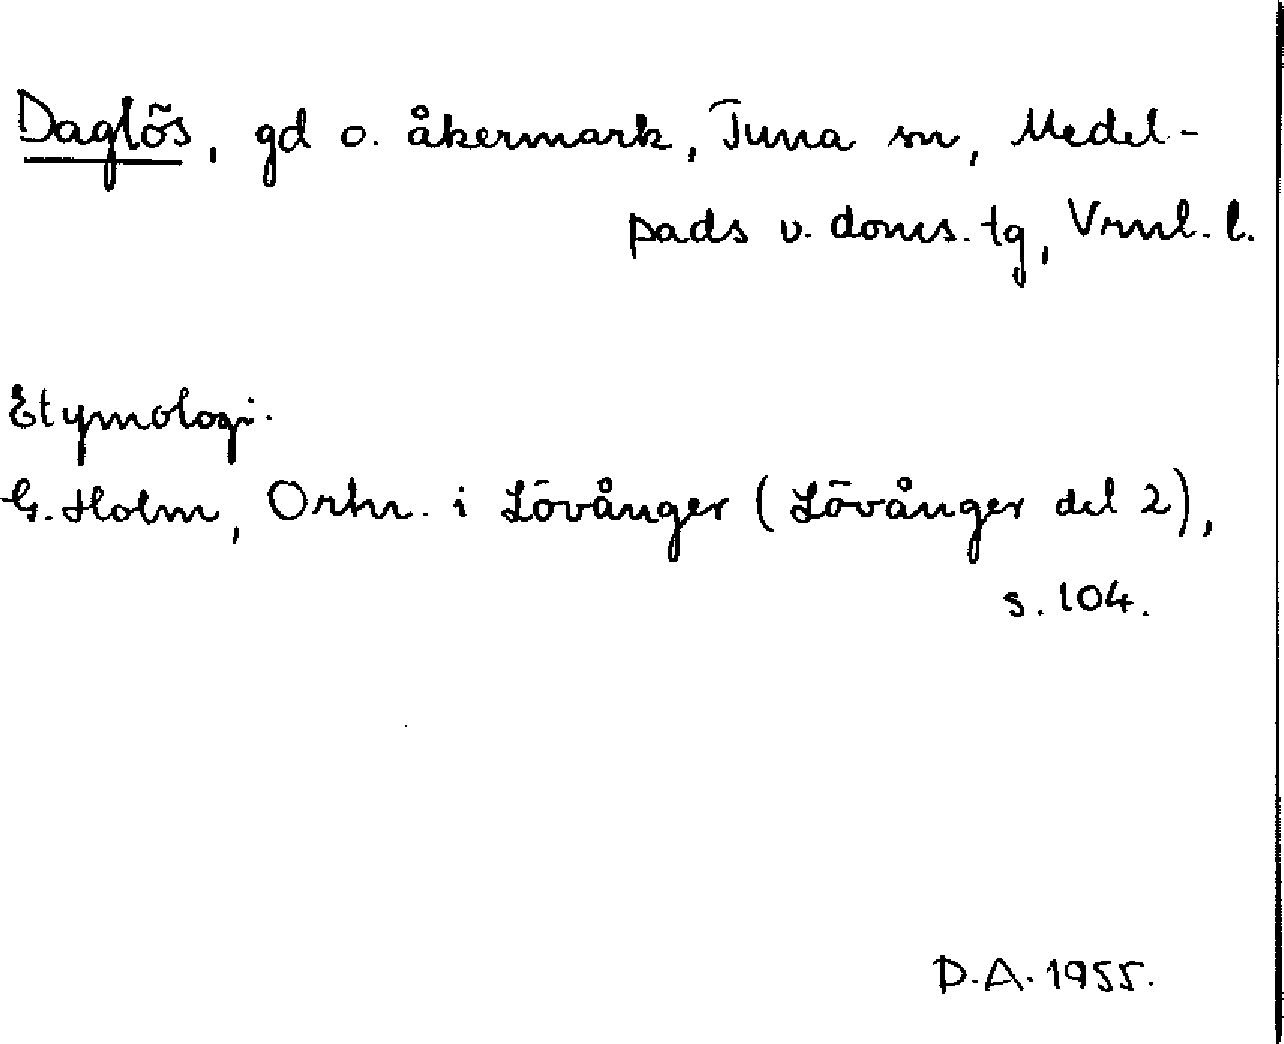 Daglös, gd o. åkermark, Tuna sn, Medel-
pads v. doms. tg, Vrnl. l.
Etymologi.
G. Holm, Ortn. i Lövånger (Lövånger del 2),
s. 104.
D.A. 1955.